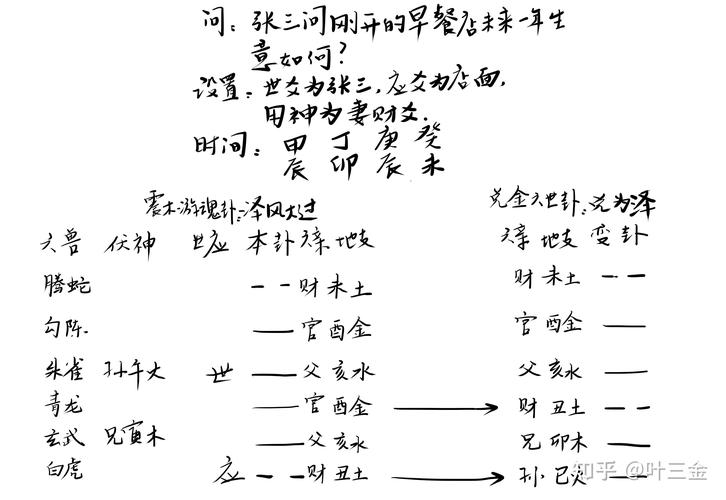 问：张三问刚开的早餐店未来一年生
意如何？
设置：世爻为张三，应爻为店面，
用神为妻财爻.
时间：甲 丁 庚 癸
辰 卯 辰 未
震木游魂卦：泽风大过 兑金六世卦：兑为泽
六兽 伏神 世应 本卦六亲地支 六亲 地支 变卦
腾蛇 财未土 财未土
勾陈. 官酉金 官酉金
朱雀 孙午火 世 父亥水 父亥水
青龙 官酉金 财丑土
玄武 兄寅木 父亥水 兄卯木
白虎 应 财丑土 孙巳火
知乎 @叶三金